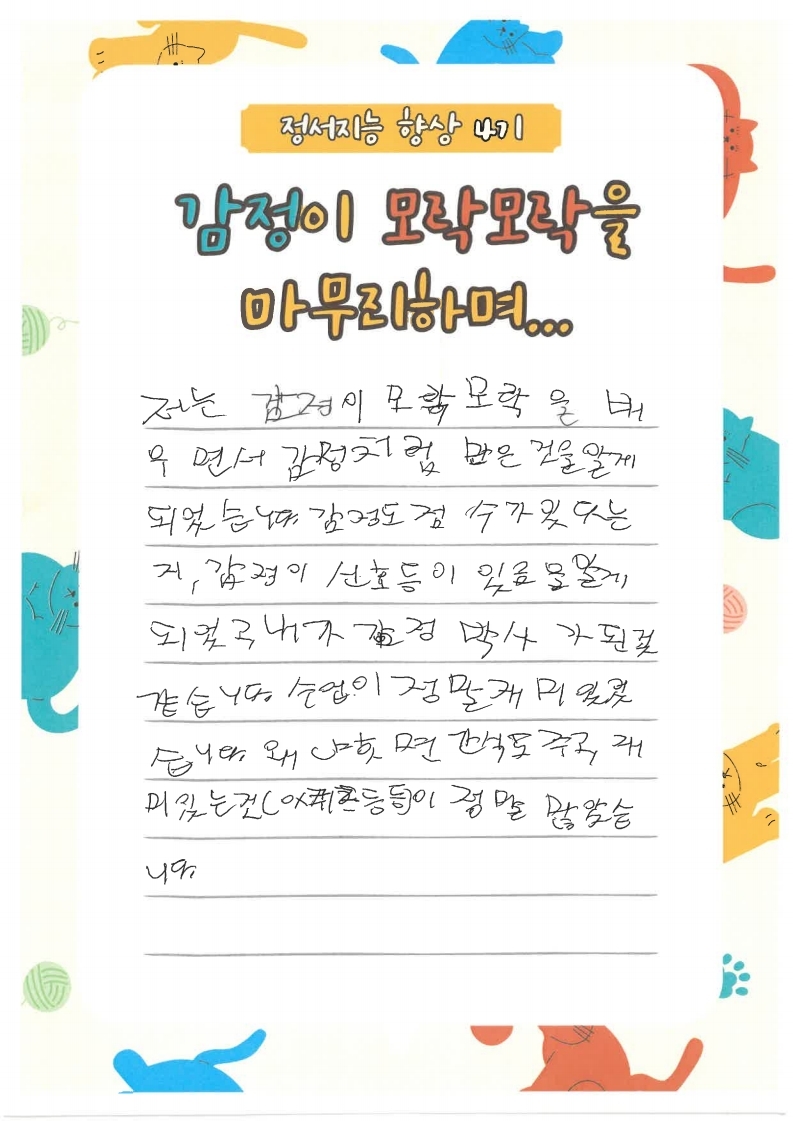 정서지능 향상 4기
감정이 모락모락을
마무리하며...
저는 감정이 모락모락을 배
우면서 감정처럼 많은 것을알게
되었습니다. 감정도 점수가있다는
지, 감정이 신호등이 있음을알게
되었고 내가 감정 박사가 된것
같습니다. 수업이 정말재미있었
습니다. 왜냐하면 간식도 주고, 재
미있는것(OX퀴즈등등)이 정말 많았습
니다.